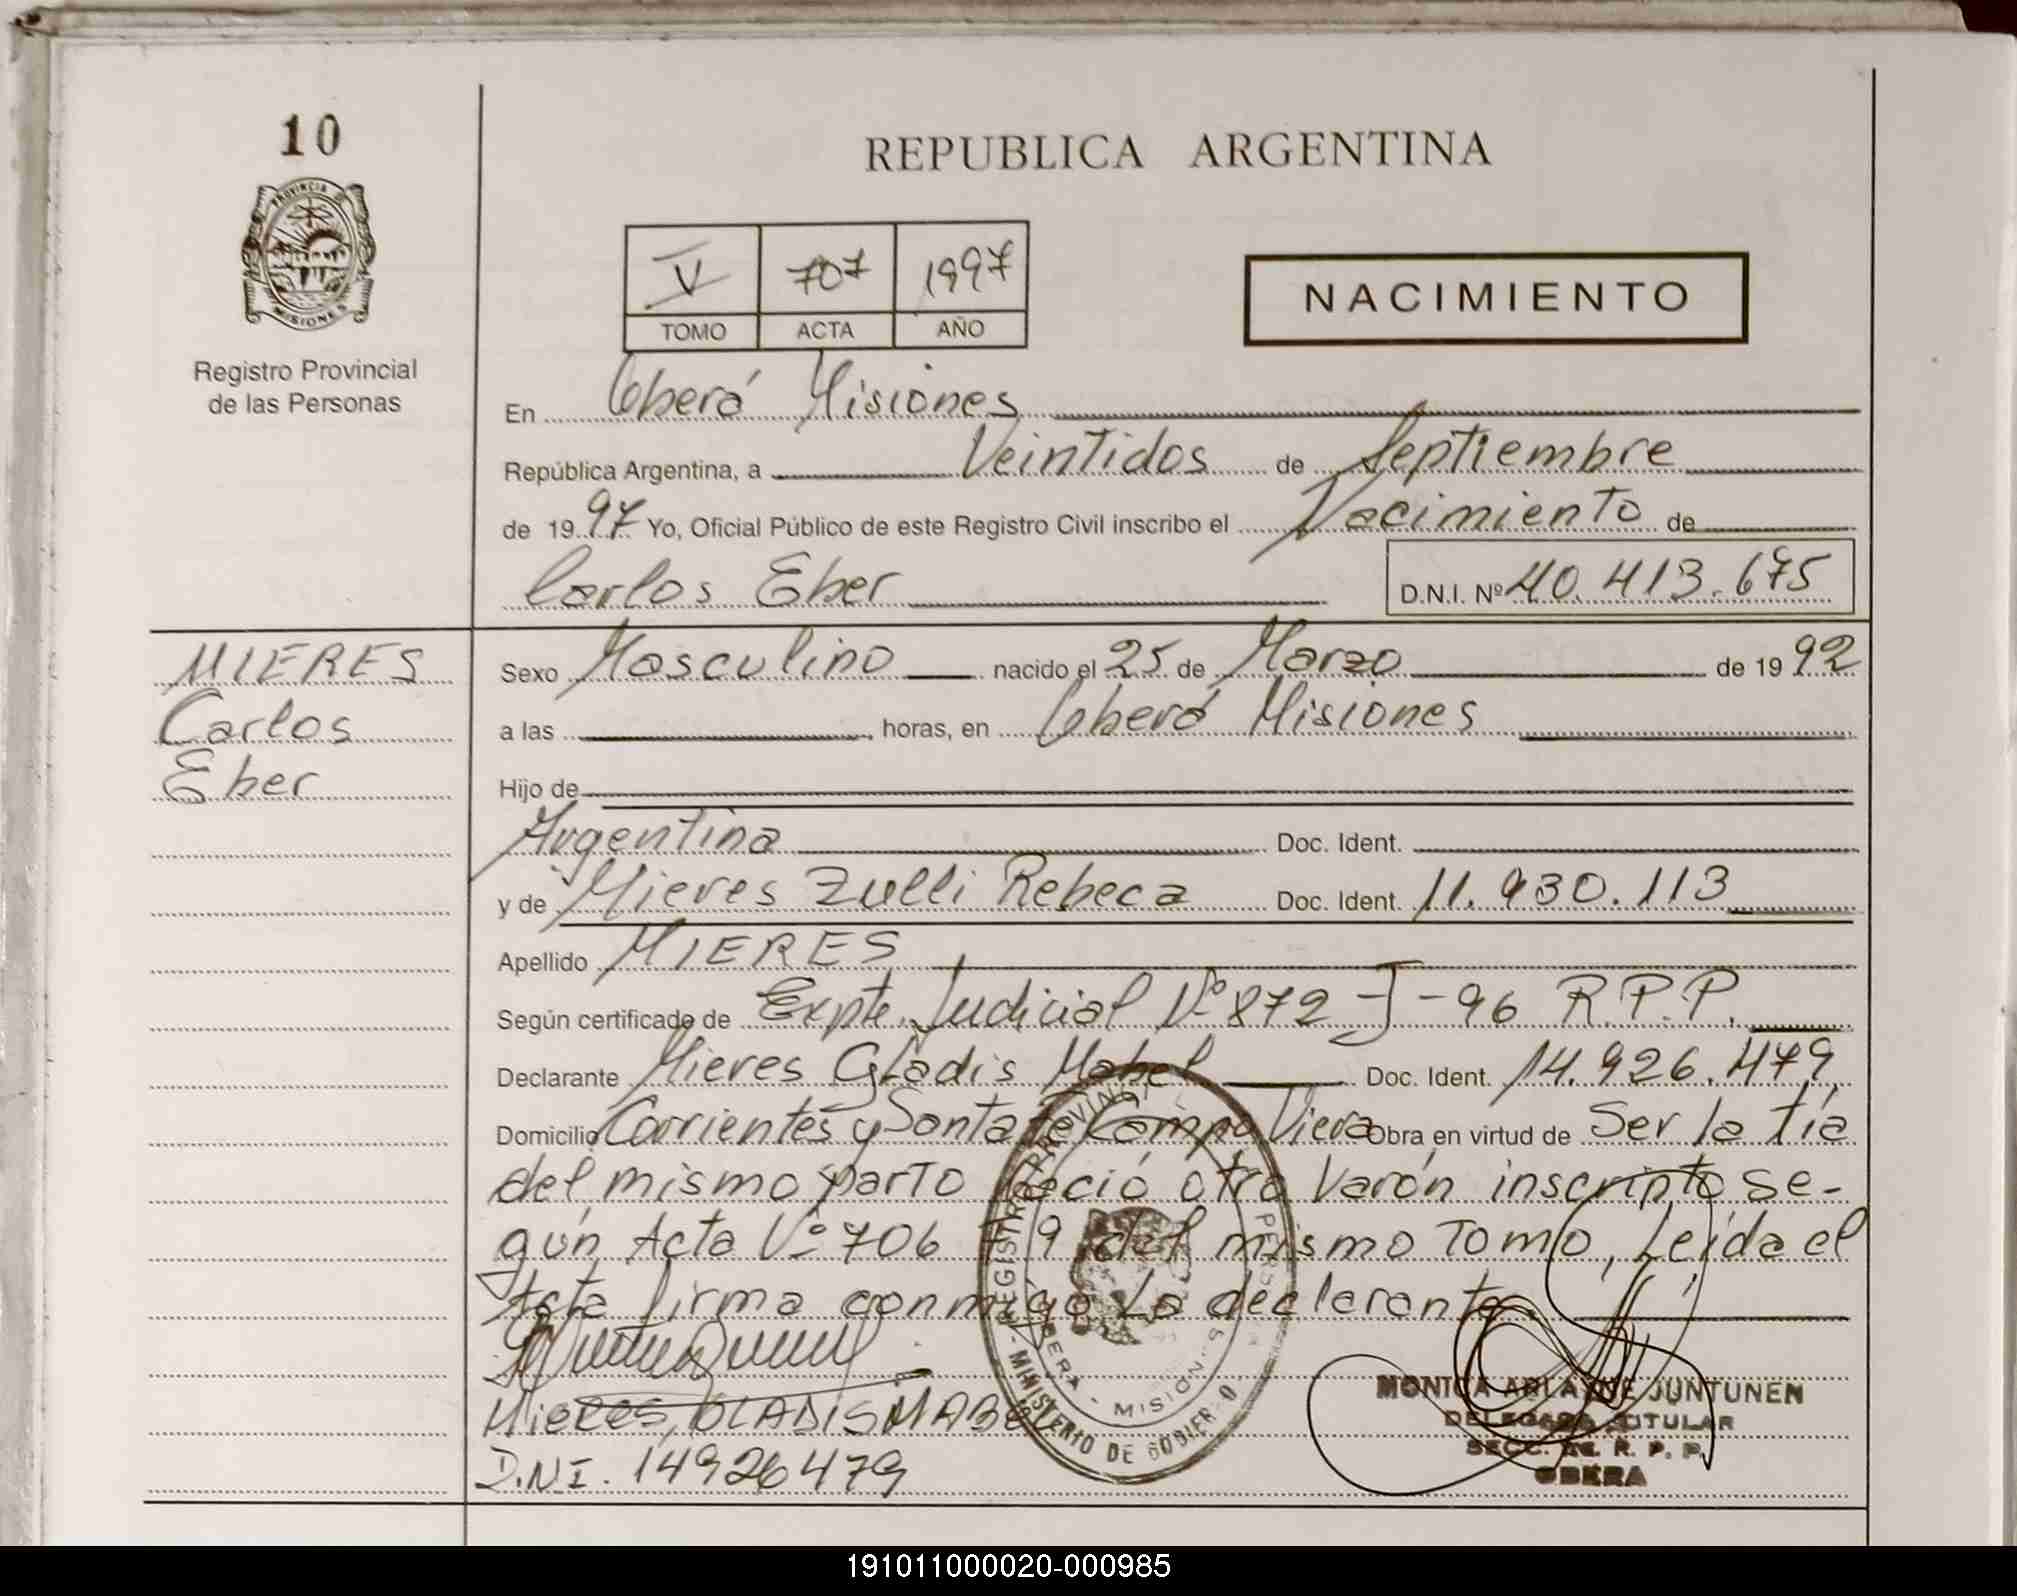 10
PROVINCIA
MISIONES
Registro Provincial
de las Personas
REPUBLICA ARGENTINA
V 707 1997
TOMO ACTA AÑO
NACIMIENTO
En Oberá Misiones
República Argentina, a Veintidos de Septiembre
de 1997 Yo, Oficial Público de este Registro Civil inscribo el Nacimiento de
Carlos Eber D.N.I. Nº 40.413.675
MIERES
Carlos
Eber
Sexo Masculino nacido el 25 de Marzo de 1992
a las horas, en Oberá Misiones
Hijo de
Argentina Doc. Ident.
y de Mieres Zulli Rebeca Doc. Ident. 11.930.113
Apellido MIERES
Según certificado de Expte. Judicial Nº 872-J-96 R.P.P.
Declarante Mieres Gladis Mabel Doc. Ident. 14.926.479
Domicilio Corrientes y Santa Fe Campo Viera Obra en virtud de Ser la tía
del mismo parto Nació otro Varón inscripto se-
gún Acta Nº 706 F 9 del mismo Tomo, Leída el
Acta firma conmigo La declarante.
Mieres, GLADIS MABEL
D.N.I. 14926479
MINISTERIO DE GOBIERNO
OBERA - MISIONES
MONICA ARLA DE JUNTUNEN
DELEGADA TITULAR
SECC. DE R. P. P.
OBERA
191011000020-000985